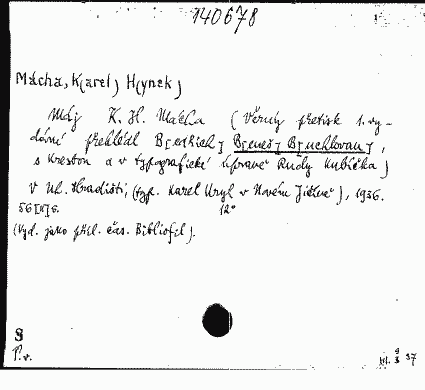 140678
Mácha, K(arel) H(ynek)
Máj K. H. Mácha (Věrný přetisk 1. vy-
dání přehlédl B[edřich] B[eneš] B[uchlovan],
s kresbou a v typografické úpravě Rudy Kubíčka)
V Uh. Hradišti, (typ. Karel Kryl v Novém Jičíně), 1936.
56 [II] s. 12°
(Vyd. jako příl. čas. Bibliofil).
S
P. v. 37